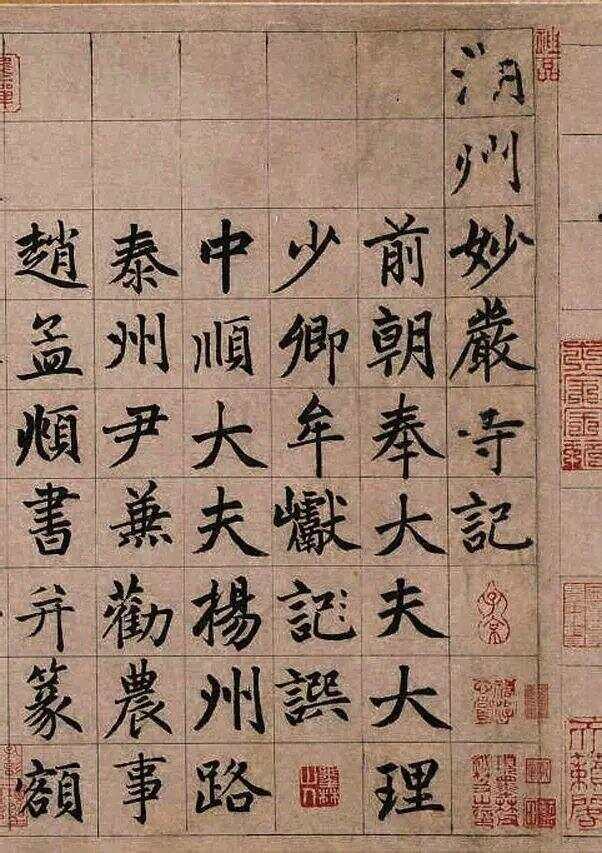 湖州妙嚴寺記
前朝奉大夫大理
少卿牟巘記撰
中順大夫揚州路
泰州尹兼勸農事
趙孟頫書并篆額
神品
天籟閣